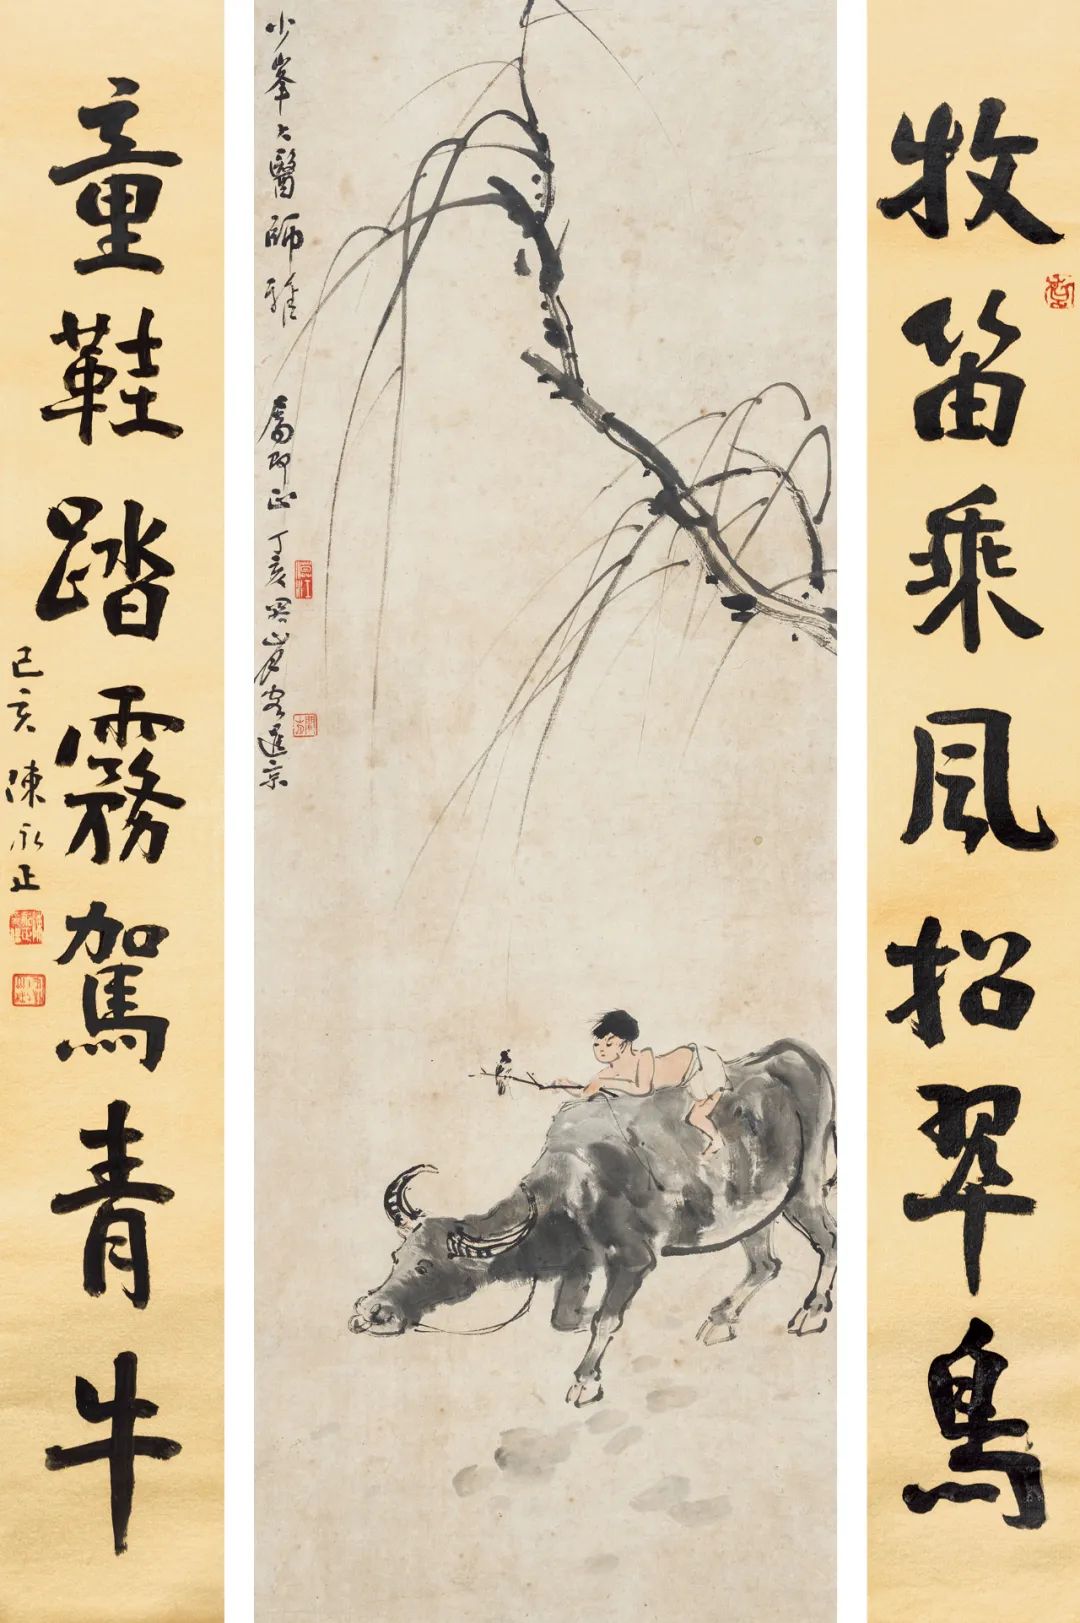 牧笛乘風招翠鳥
少峯大醫師雅屬即正丁亥關山月客暹京
童鞋踏霧駕青牛
己亥陳永正